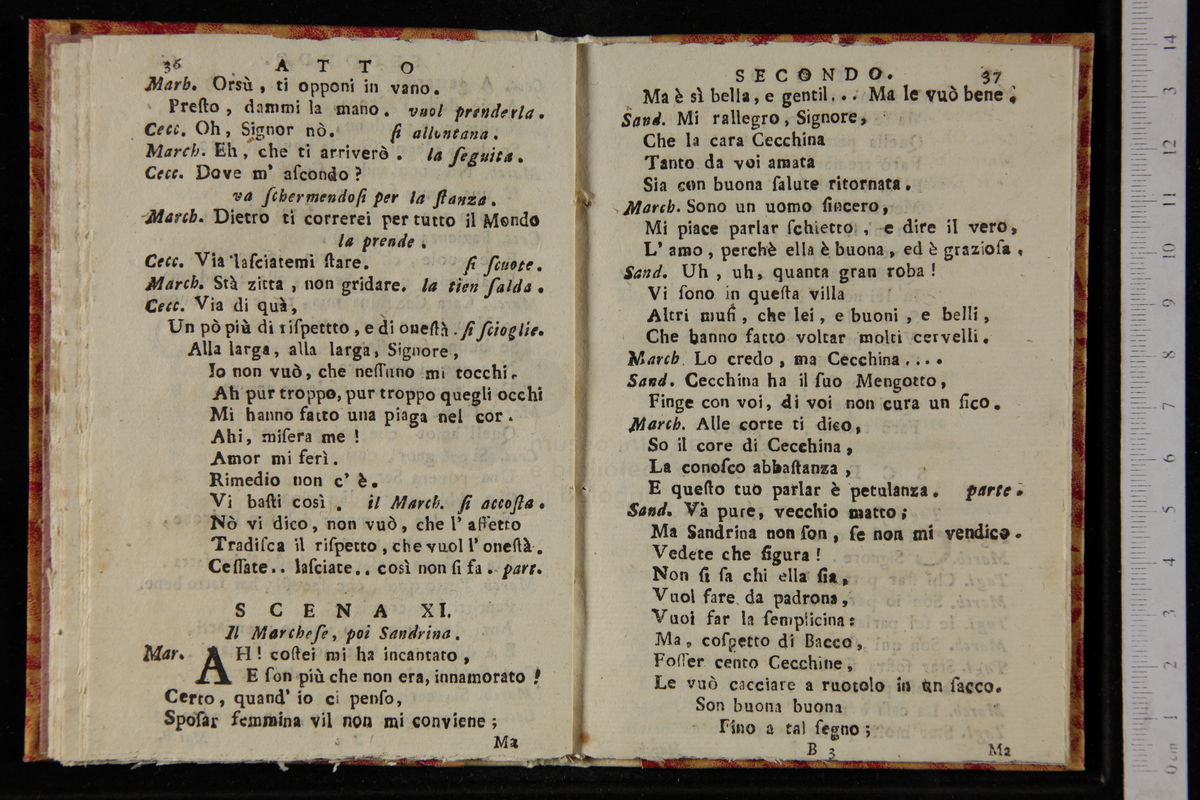 36 A T T O
Marh. Orsù, ti opponi in vano.
Preſto, dammi la mano. vuol prenderla.
Cecc. Oh, Signor nò. ſi allontana.
March. Eh, che ti arriverò. la ſeguita.
Cecc. Dove m' aſcondo?
va ſchermendoſi per la ſtanza.
March. Dietro ti correrei per tutto il Mondo
la prende.
Cecc. Via laſciatemi ſtare. ſi ſcuote.
March. Stà zitta, non gridare. la tien ſalda.
Cecc. Via di quà,
Un pò più di riſpettto, e di oneſtà. ſi ſcioglie.
Alla larga, alla larga, Signore,
Io non vuò, che neſſuno mi tocchi.
Ah pur troppo, pur troppo quegli occhi
Mi hanno fatto una piaga nel cor.
Ahi, miſera me!
Amor mi ferì.
Rimedio non c' è.
Vi baſti così. il March. ſi accoſta.
Nò vi dico, non vuò, che l' affetto
Tradiſca il riſpetto, che vuol l' oneſtà.
Ceſſate.. laſciate.. così non ſi fa. part.
S C E N A XI.
Il Marcheſe, poi Sandrina.
Mar. AH! coſtei mi ha incantato,
E ſon più che non era, innamorato!
Certo, quand' io ci penſo,
Spoſar femmina vil non mi conviene;
Ma
SECONDO. 37
Ma è sì bella, e gentil... Ma le vuò bene.
Sand. Mi rallegro, Signore,
Che la cara Cecchina
Tanto da voi amata
Sia con buona ſalute ritornata.
March. Sono un uomo ſincero,
Mi piace parlar ſchietto, e dire il vero,
L' amo, perchè ella è buona, ed è grazioſa.
Sand. Uh, uh, quanta gran roba!
Vi ſono in queſta villa
Altri muſi, che lei, e buoni, e belli,
Che hanno fatto voltar molti cervelli.
March. Lo credo, ma Cecchina....
Sand. Cecchina ha il ſuo Mengotto,
Finge con voi, di voi non cura un fico.
March. Alle corte ti dico,
So il core di Cecchina,
La conoſco abbaſtanza,
E queſto tuo parlar è petulanza. parte.
Sand. Và pure, vecchio matto;
Ma Sandrina non ſon, ſe non mi vendico.
Vedete che figura!
Non ſi ſa chi ella ſia,
Vuol fare da padrona,
Vuol far la ſemplicina:
Ma, coſpetto di Bacco,
Foſſer cento Cecchine,
Le vuò cacciare a ruotolo in un ſacco.
Son buona buona
Fino a tal ſegno;
B 3 Ma